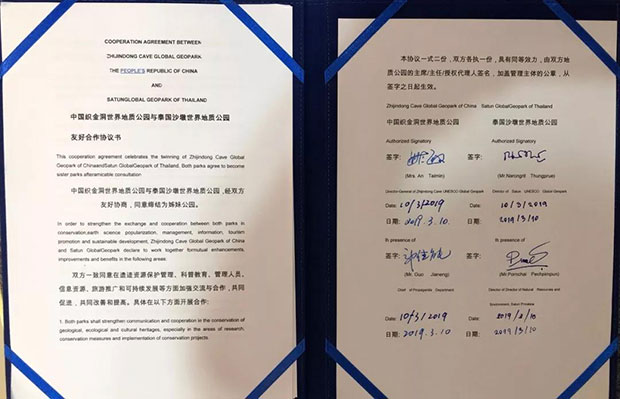 COOPERATION AGREEMENT BETWEEN
ZHIJINDONG CAVE GLOBAL GEOPARK
THE PEOPLE'S REPUBLIC OF CHINA
AND
SATUNGLOBAL GEOPARK OF THAILAND
中国织金洞世界地质公园与泰国沙墩世界地质公园
友好合作协议书
This cooperation agreement celebrates the twinning of Zhijindong Cave Global
Geopark of ChinaandSatun GlobalGeopark of Thailand. Both parks agree to become
sister parks afteramicable consultation
中国织金洞世界地质公园与泰国沙墩世界地质公园,经双方
友好协商，同意缔结为姊妹公园。
In order to strengthen the exchange and cooperation between both parks in
conservation,earth science popularization, management, information, tourism
promotion and sustainable development, Zhijindong Cave Global Geopark of China
and Satun GlobalGeopark declare to work together formutual enhancements,
improvements and benefits in the following areas.
双方一致同意在遗迹资源保护管理、科普教育、管理人员、
信息资源、旅游推广和可持续发展等方面加强交流与合作，共同
促进，共同改善和提高。具体在以下方面开展合作:
1. Both parks shall strengthen communication and cooperation in the conservation of
geological, ecological and cultural heritages, especially in the areas of research,
conservation measures and implementation of conservation projects.
本协议一式二份，双方各执一份，具有同等效力，由双方地
质公园的主席/主任/授权代理人签名，加盖管理主体的公章，从
签字之日起生效。
Zhijindong Cave Global Geopark of China Satun GlobalGeopark of Thailand
中国织金洞世界地质公园 泰国沙墩世界地质公园
Authorized Signatory Authorized Signatory
签字: 签字:
(Mrs An Taimin) (Mr.Narongrit Thungprue)
Director-General of Zhijindong Cave UNESCO Global Geopark Director of Satun UNESCO Global Geopark
Date: 10/3/2019 Date: 10/3/2019
日期: 2019.3.10. 日期: 2019/3/10
In presence of In presence of
签字: 签字:
(Mr. Guo Janeng) (Mr.Pornchai
Chief of Propaganda Department Director of Director of Natural Resources and
Environment, Satun Province
Date: 10/3/2019 Date:
日期: 2019.3.10 日期: 2019/3/10